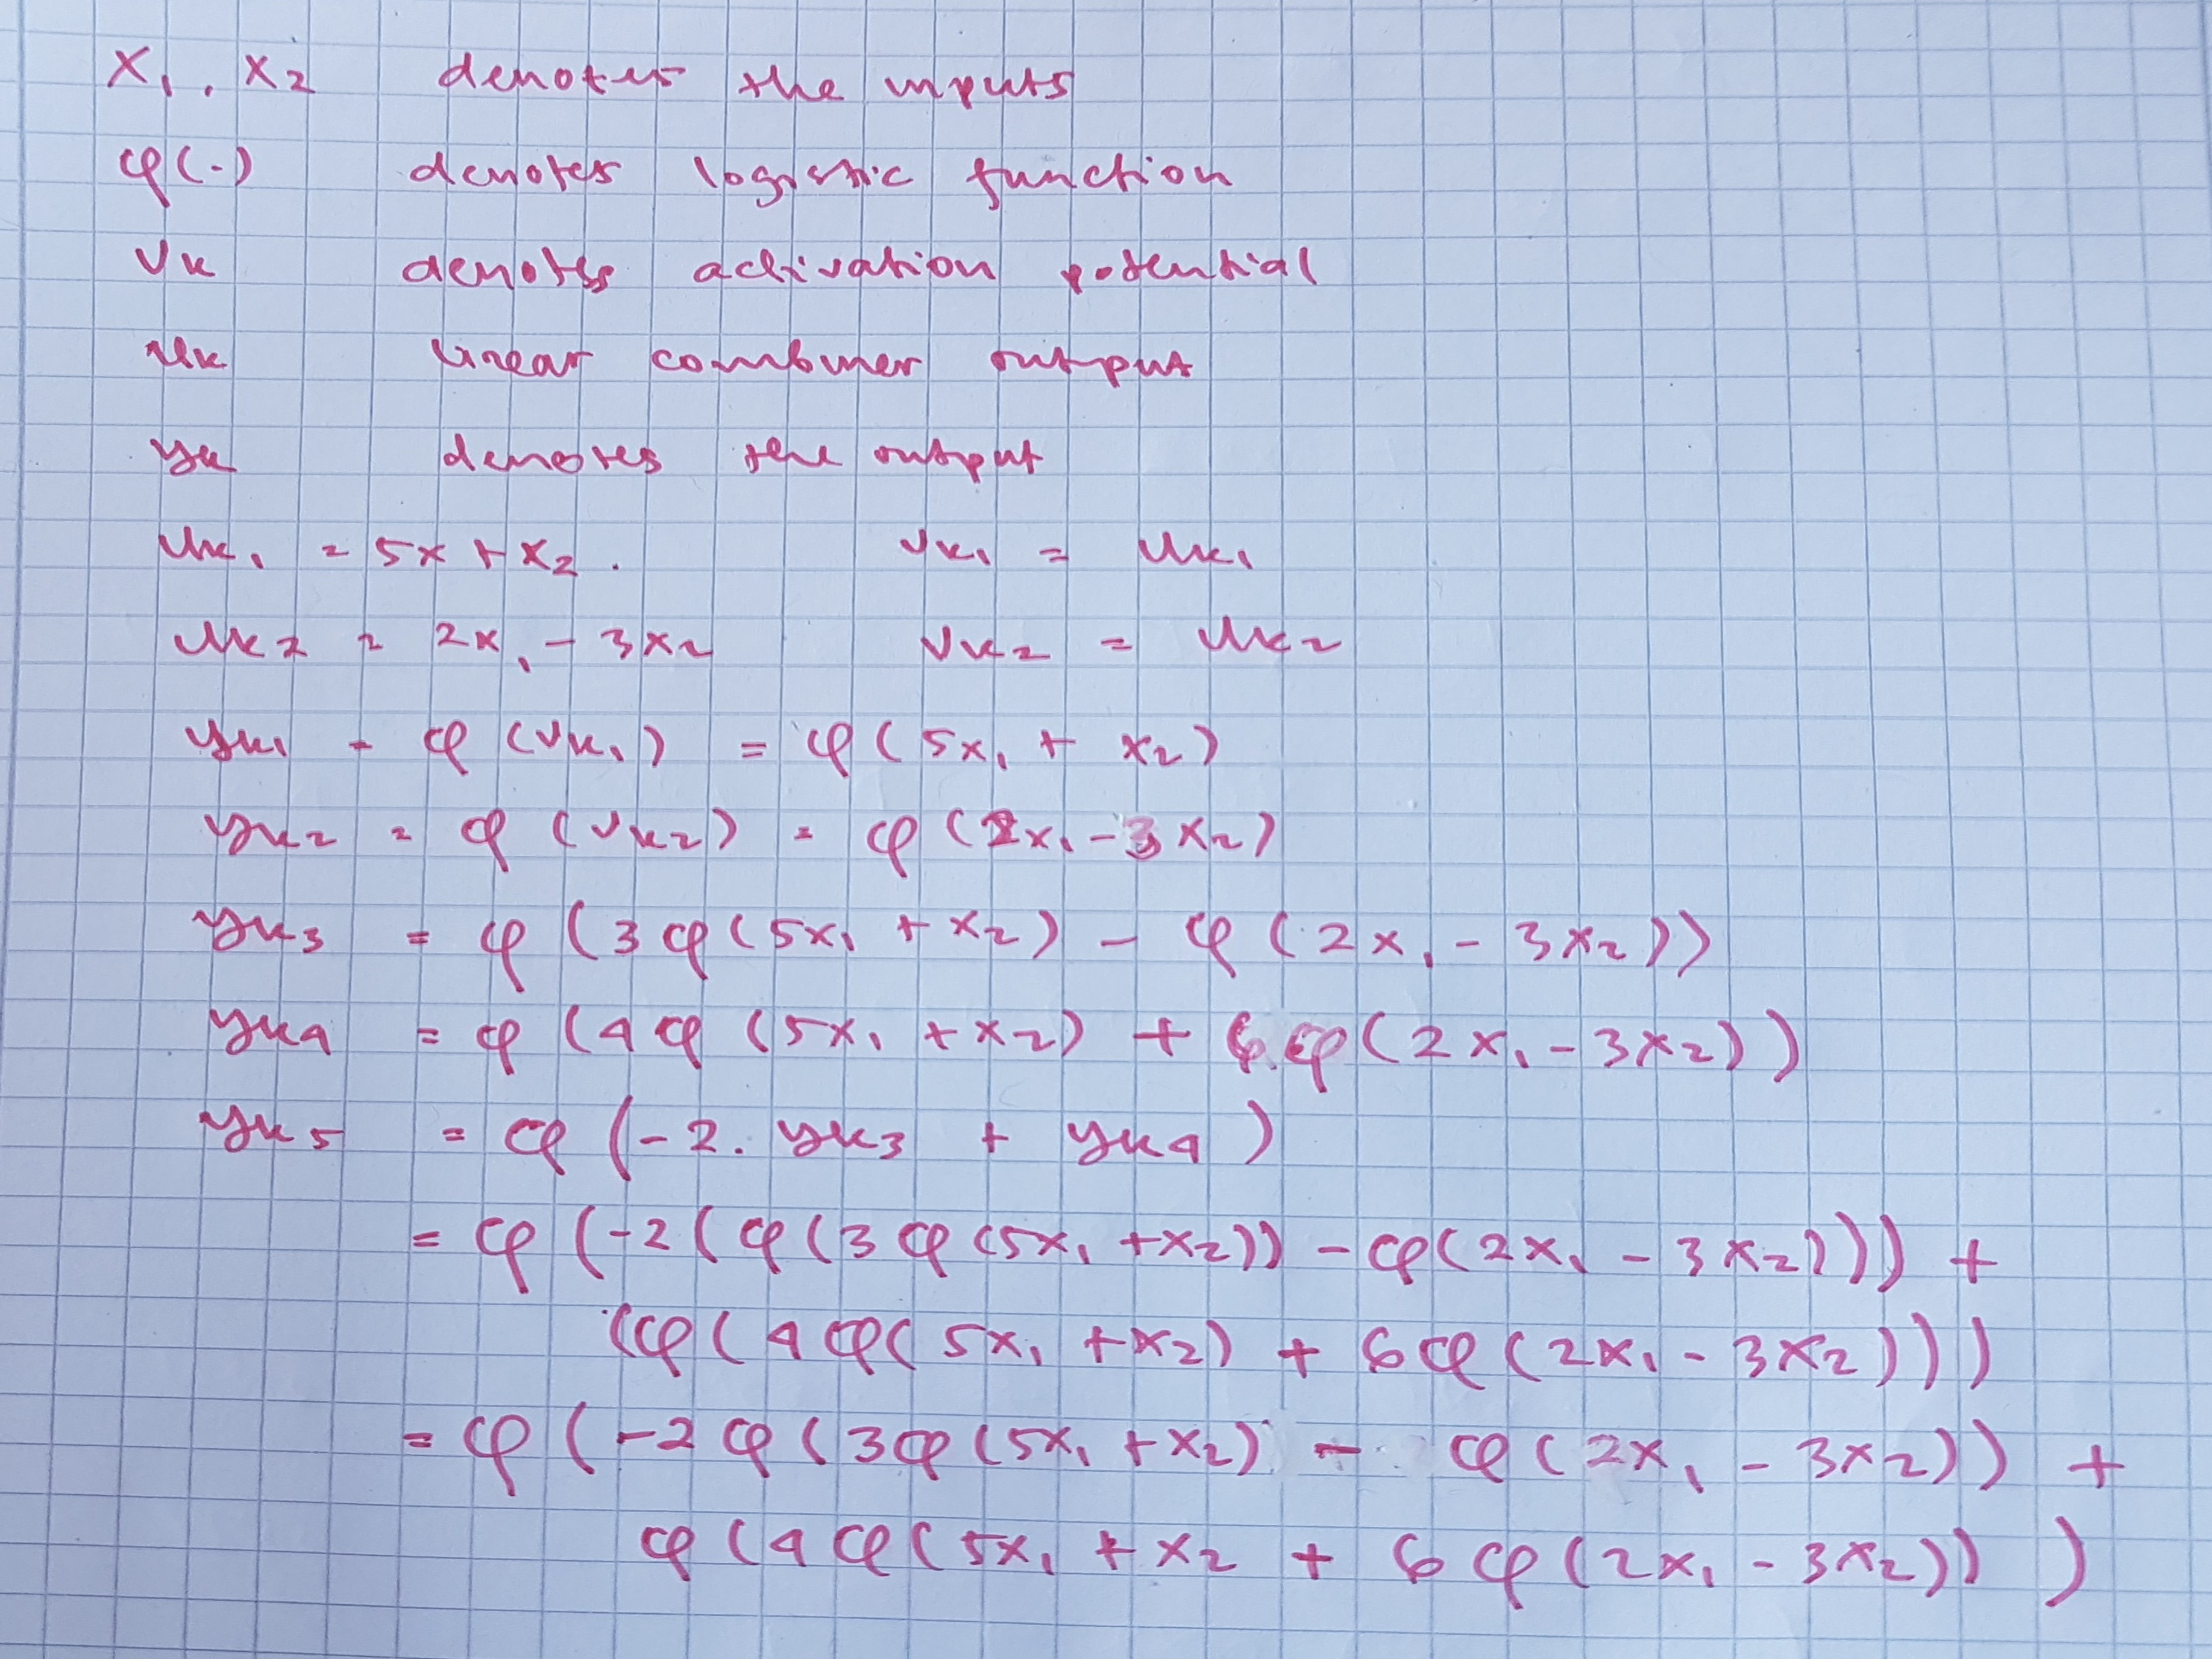 x₁, x₂ denotes the inputs
φ(·) denotes logistic function
vₖ denotes activation potential
uₖ linear combiner output
yₖ denotes the output
uₖ₁ = 5x + x₂. vₖ₁ = uₖ₁
uₖ₂ = 2x₁ - 3x₂ vₖ₂ = uₖ₂
yₖ₁ = φ(vₖ₁) = φ(5x₁ + x₂)
yₖ₂ = φ(vₖ₂) = φ(2x₁ - 3x₂)
yₖ₃ = φ(3φ(5x₁ + x₂) - φ(2x₁ - 3x₂))
yₖ₄ = φ(4φ(5x₁ + x₂) + 6φ(2x₁ - 3x₂))
yₖ₅ = φ(-2·yₖ₃ + yₖ₄)
= φ(-2(φ(3φ(5x₁ + x₂)) - φ(2x₁ - 3x₂))) +
(φ(4φ(5x₁ + x₂) + 6φ(2x₁ - 3x₂)))
= φ(-2φ(3φ(5x₁ + x₂) - φ(2x₁ - 3x₂)) +
φ(4φ(5x₁ + x₂ + 6φ(2x₁ - 3x₂)))